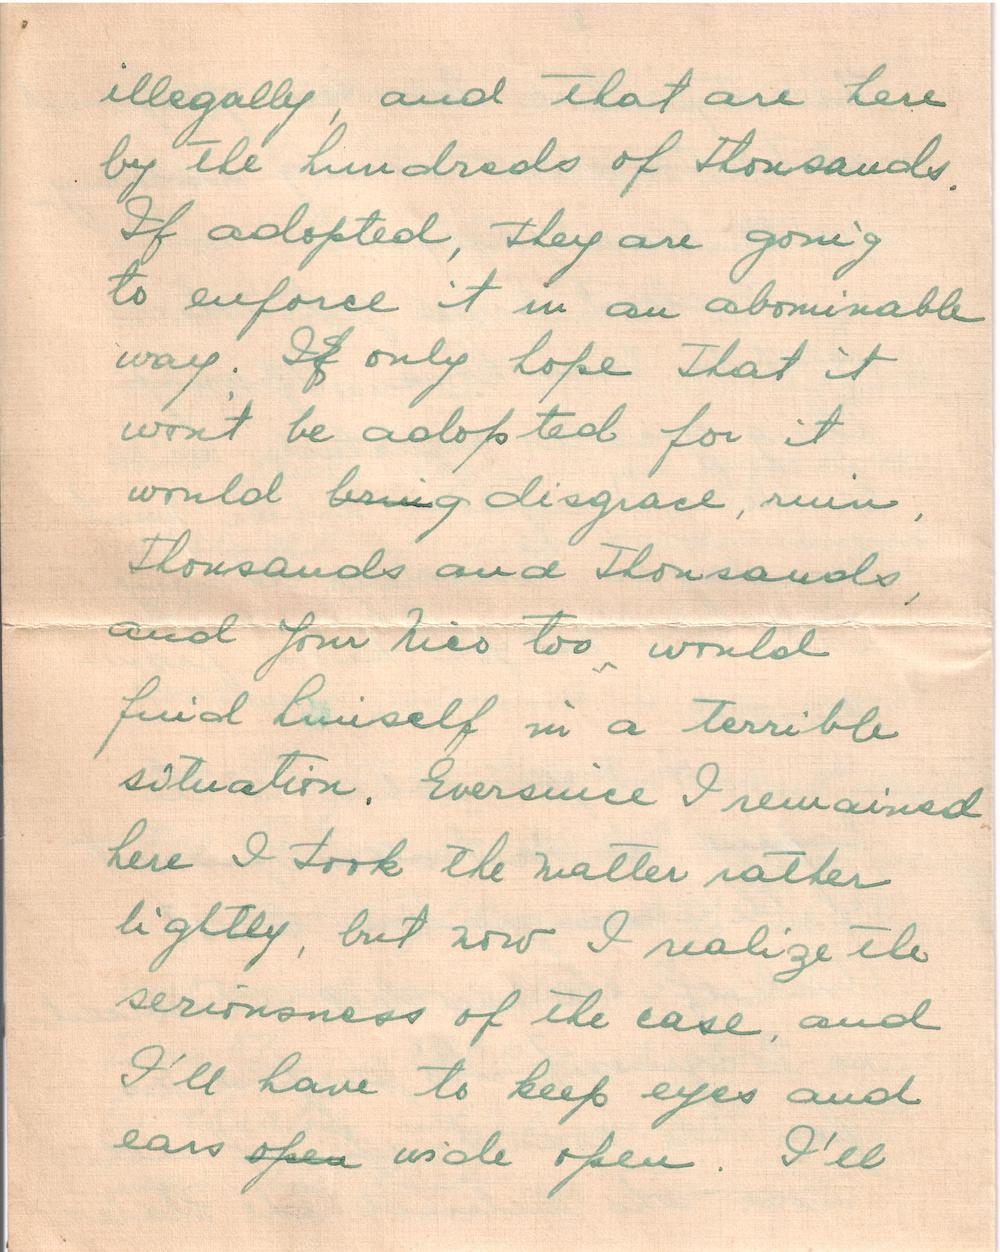 illegally, and that are here
by the hundreds of thousands.
If adopted, they are going
to enforce it in an abominable
way. I only hope that it
won't be adopted for it
would bring disgrace, ruin,
thousands and thousands,
and your Nico too, would
find himself in a terrible
situation. Eversince I remained
here I took the matter rather
lightly, but now I realize the
seriousness of the case, and
I'll have to keep eyes and
ears open wide open. I'll